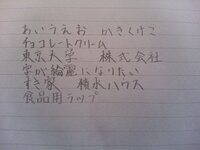 あいうえお かきくけこ
チョコレートクリーム
東京大学 株式会社
字が綺麗になりたい
すき家 積水ハウス
食品用ラップ